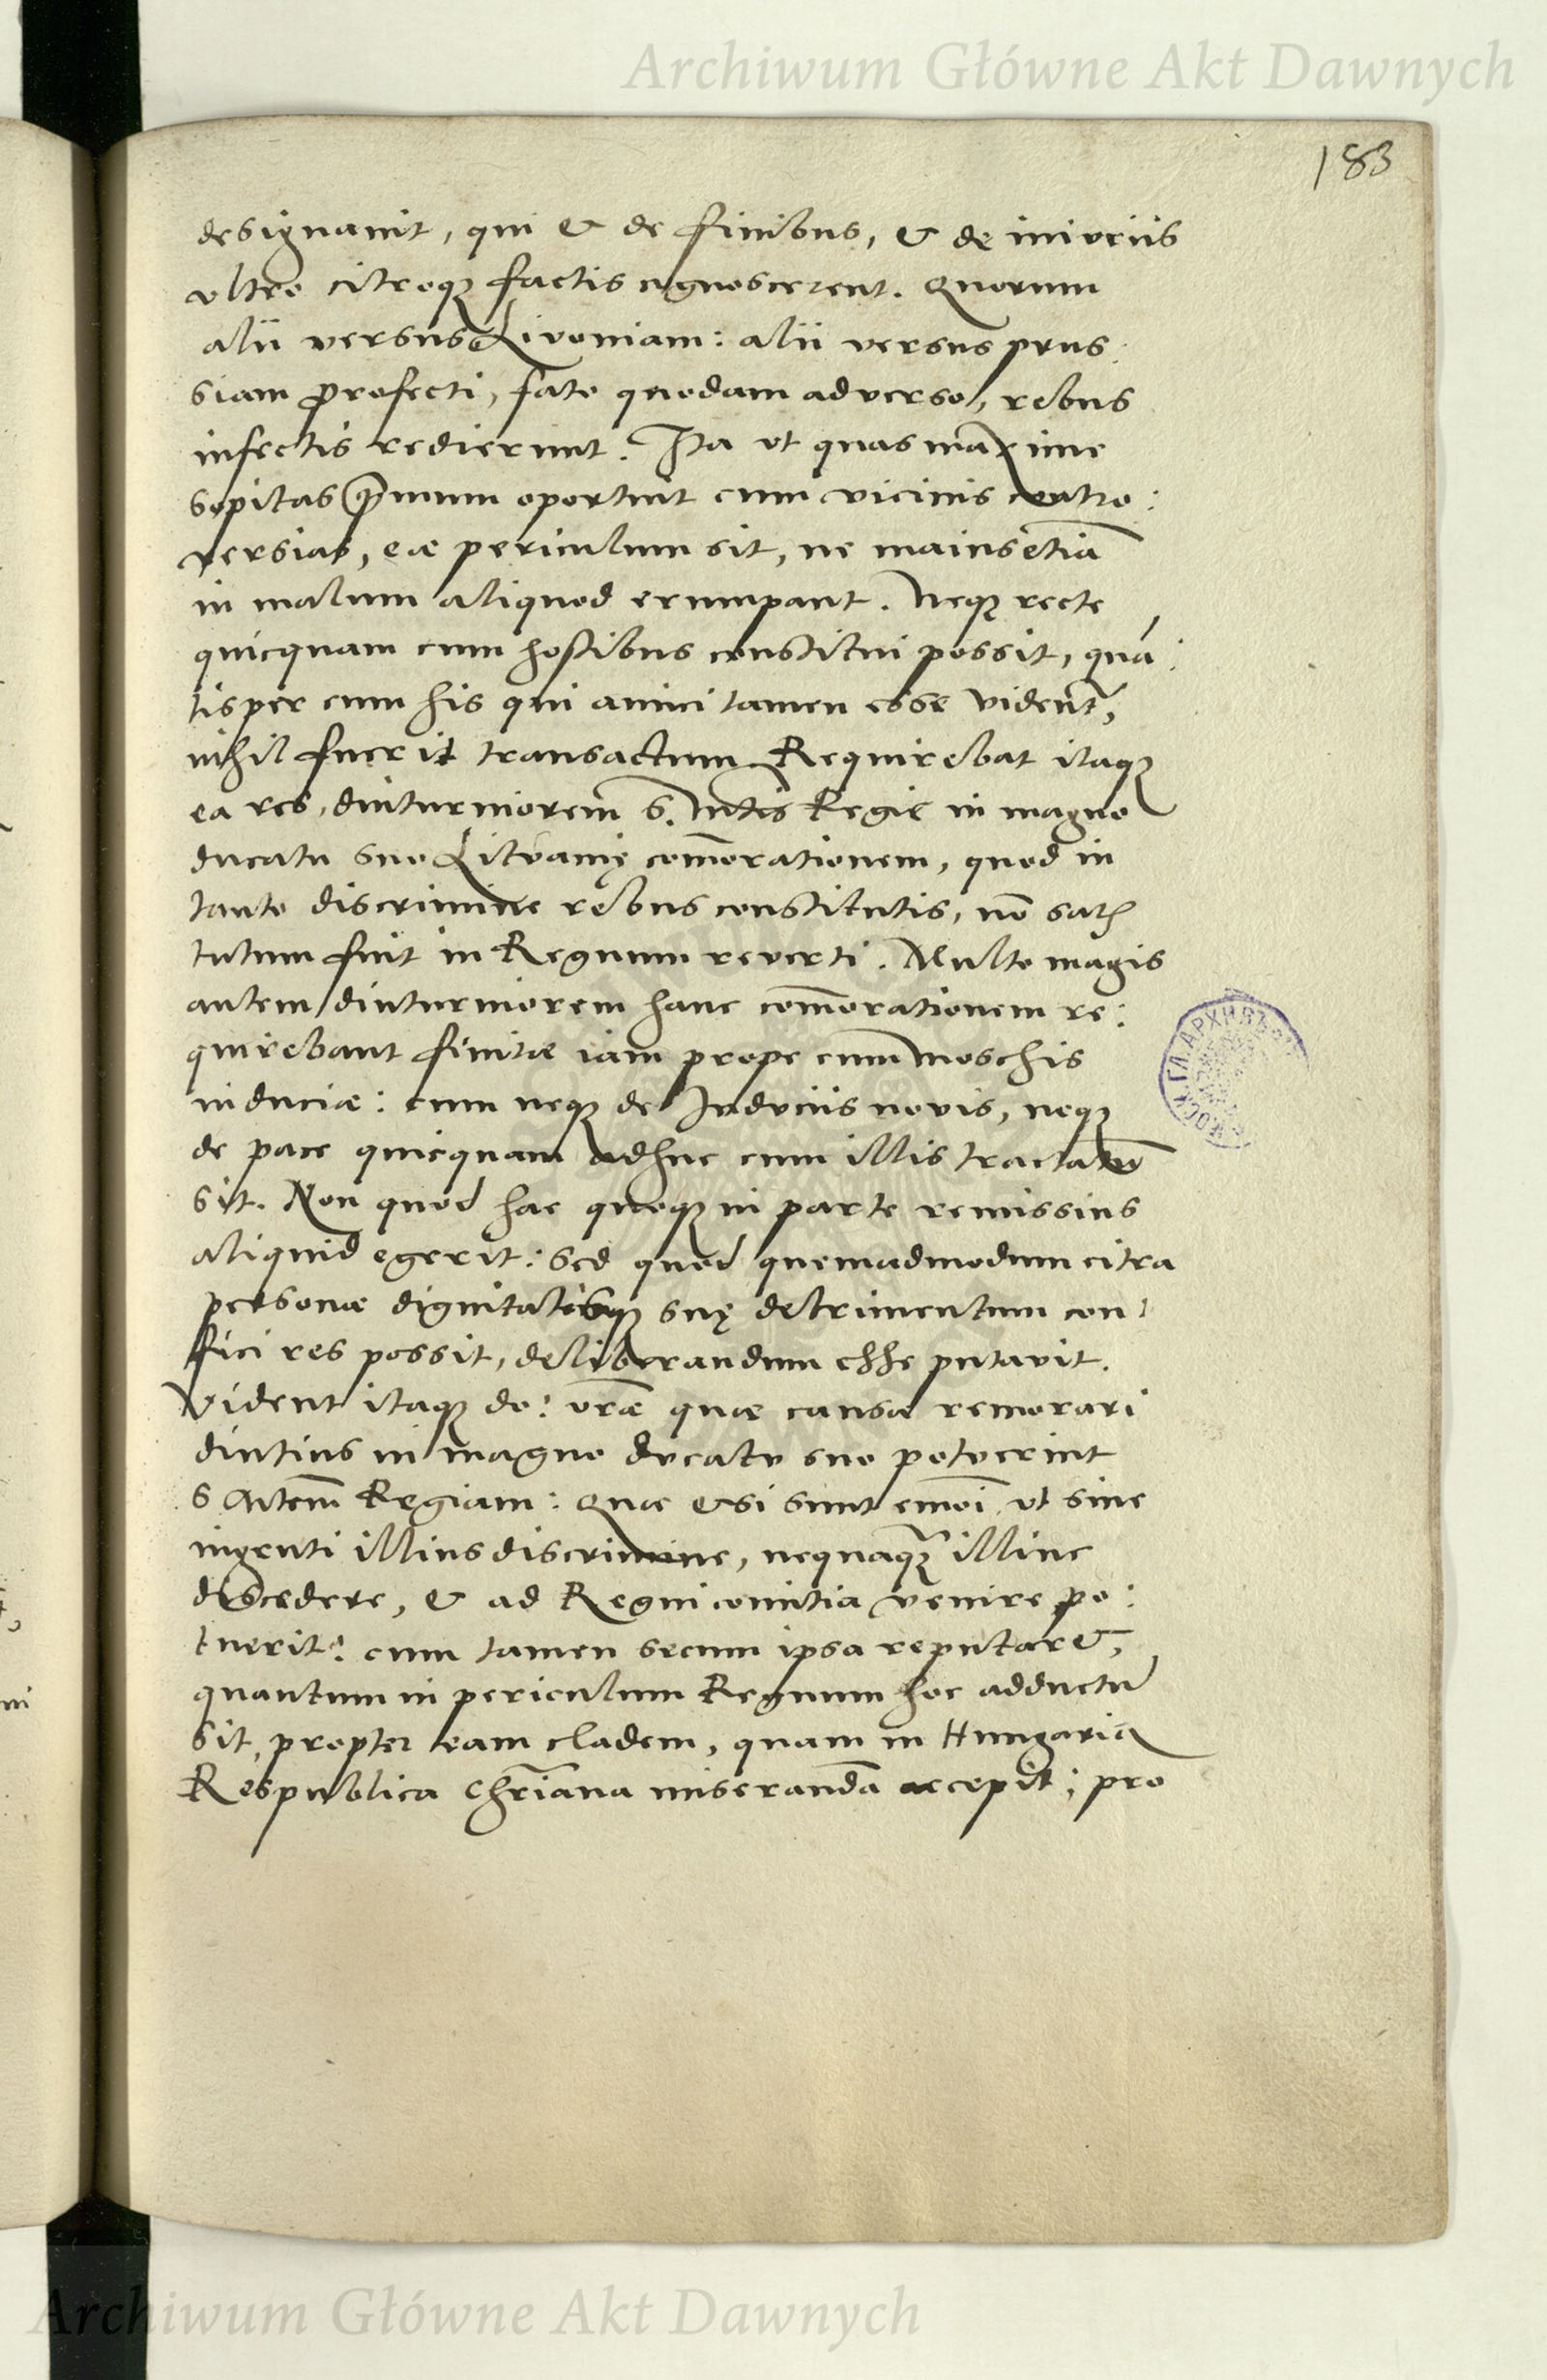 Archiwum Główne Akt Dawnych
183
designauit, qui & de finibus, & de iniuriis
vltro citroq₃ factis cognoscerent. Quorum
alii versus Livoniam: alii versus prus:
siam profecti, fato quodam adverso, rebus
infectis redierunt. Ita vt quas maxime
sopitas p̄mum oportuit cum vicinis contro:
versias, eæ periculum sit, ne maius etiā
in malum aliquod erumpant. Neq₃ recte
quicquam cum hostibus constitui possit, quā:
tisper cum his qui amici tamen esse vident̄,
nihil fuerit transactum. Requirebat itaq₃
ea res, diuturniorem S. Mtis Regie in magno
ducatu suo Lituanię com̄orationem, quod in
tanto discrimine rebus constitutis, nō satis
tutum fuit in Regnum reverti. Multo magis
autem diuturniorem hanc com̄orationem re:
quirebant finitæ iam prope cum Moschis
induciæ: cum neq₃ de Induciis novis, neq₃
de pace quicquam adhuc cum illis tractatū
sit. Non quod hac quoq₃ in parte remissius
aliquid egerit: sed quod quemadmodum citra
personæ dignitatisq₃ suę detrimentum con:
fici res possit, deliberandum esse putavit.
Vident itaq₃ do: vr̄æ quæ causæ remorari
diutius in magno ducatu suo potuerint
S Mtem̄ Regiam: Quæ etsi sunt em̄oi, vt sine
ingenti illius discrimine, nequaq₃ illinc
discedere, & ad Regni comitia venire po:
tuerit: cum tamen secum ipsa reputaret,
quantum in periculum Regnum hoc adductū
sit, propter eam cladem, quam in Hungaria
Respublica Chr̄iana miseranda accepit; pro
ГЛ. АРХИВЪ
МОСК
Archiwum Główne Akt Dawnych